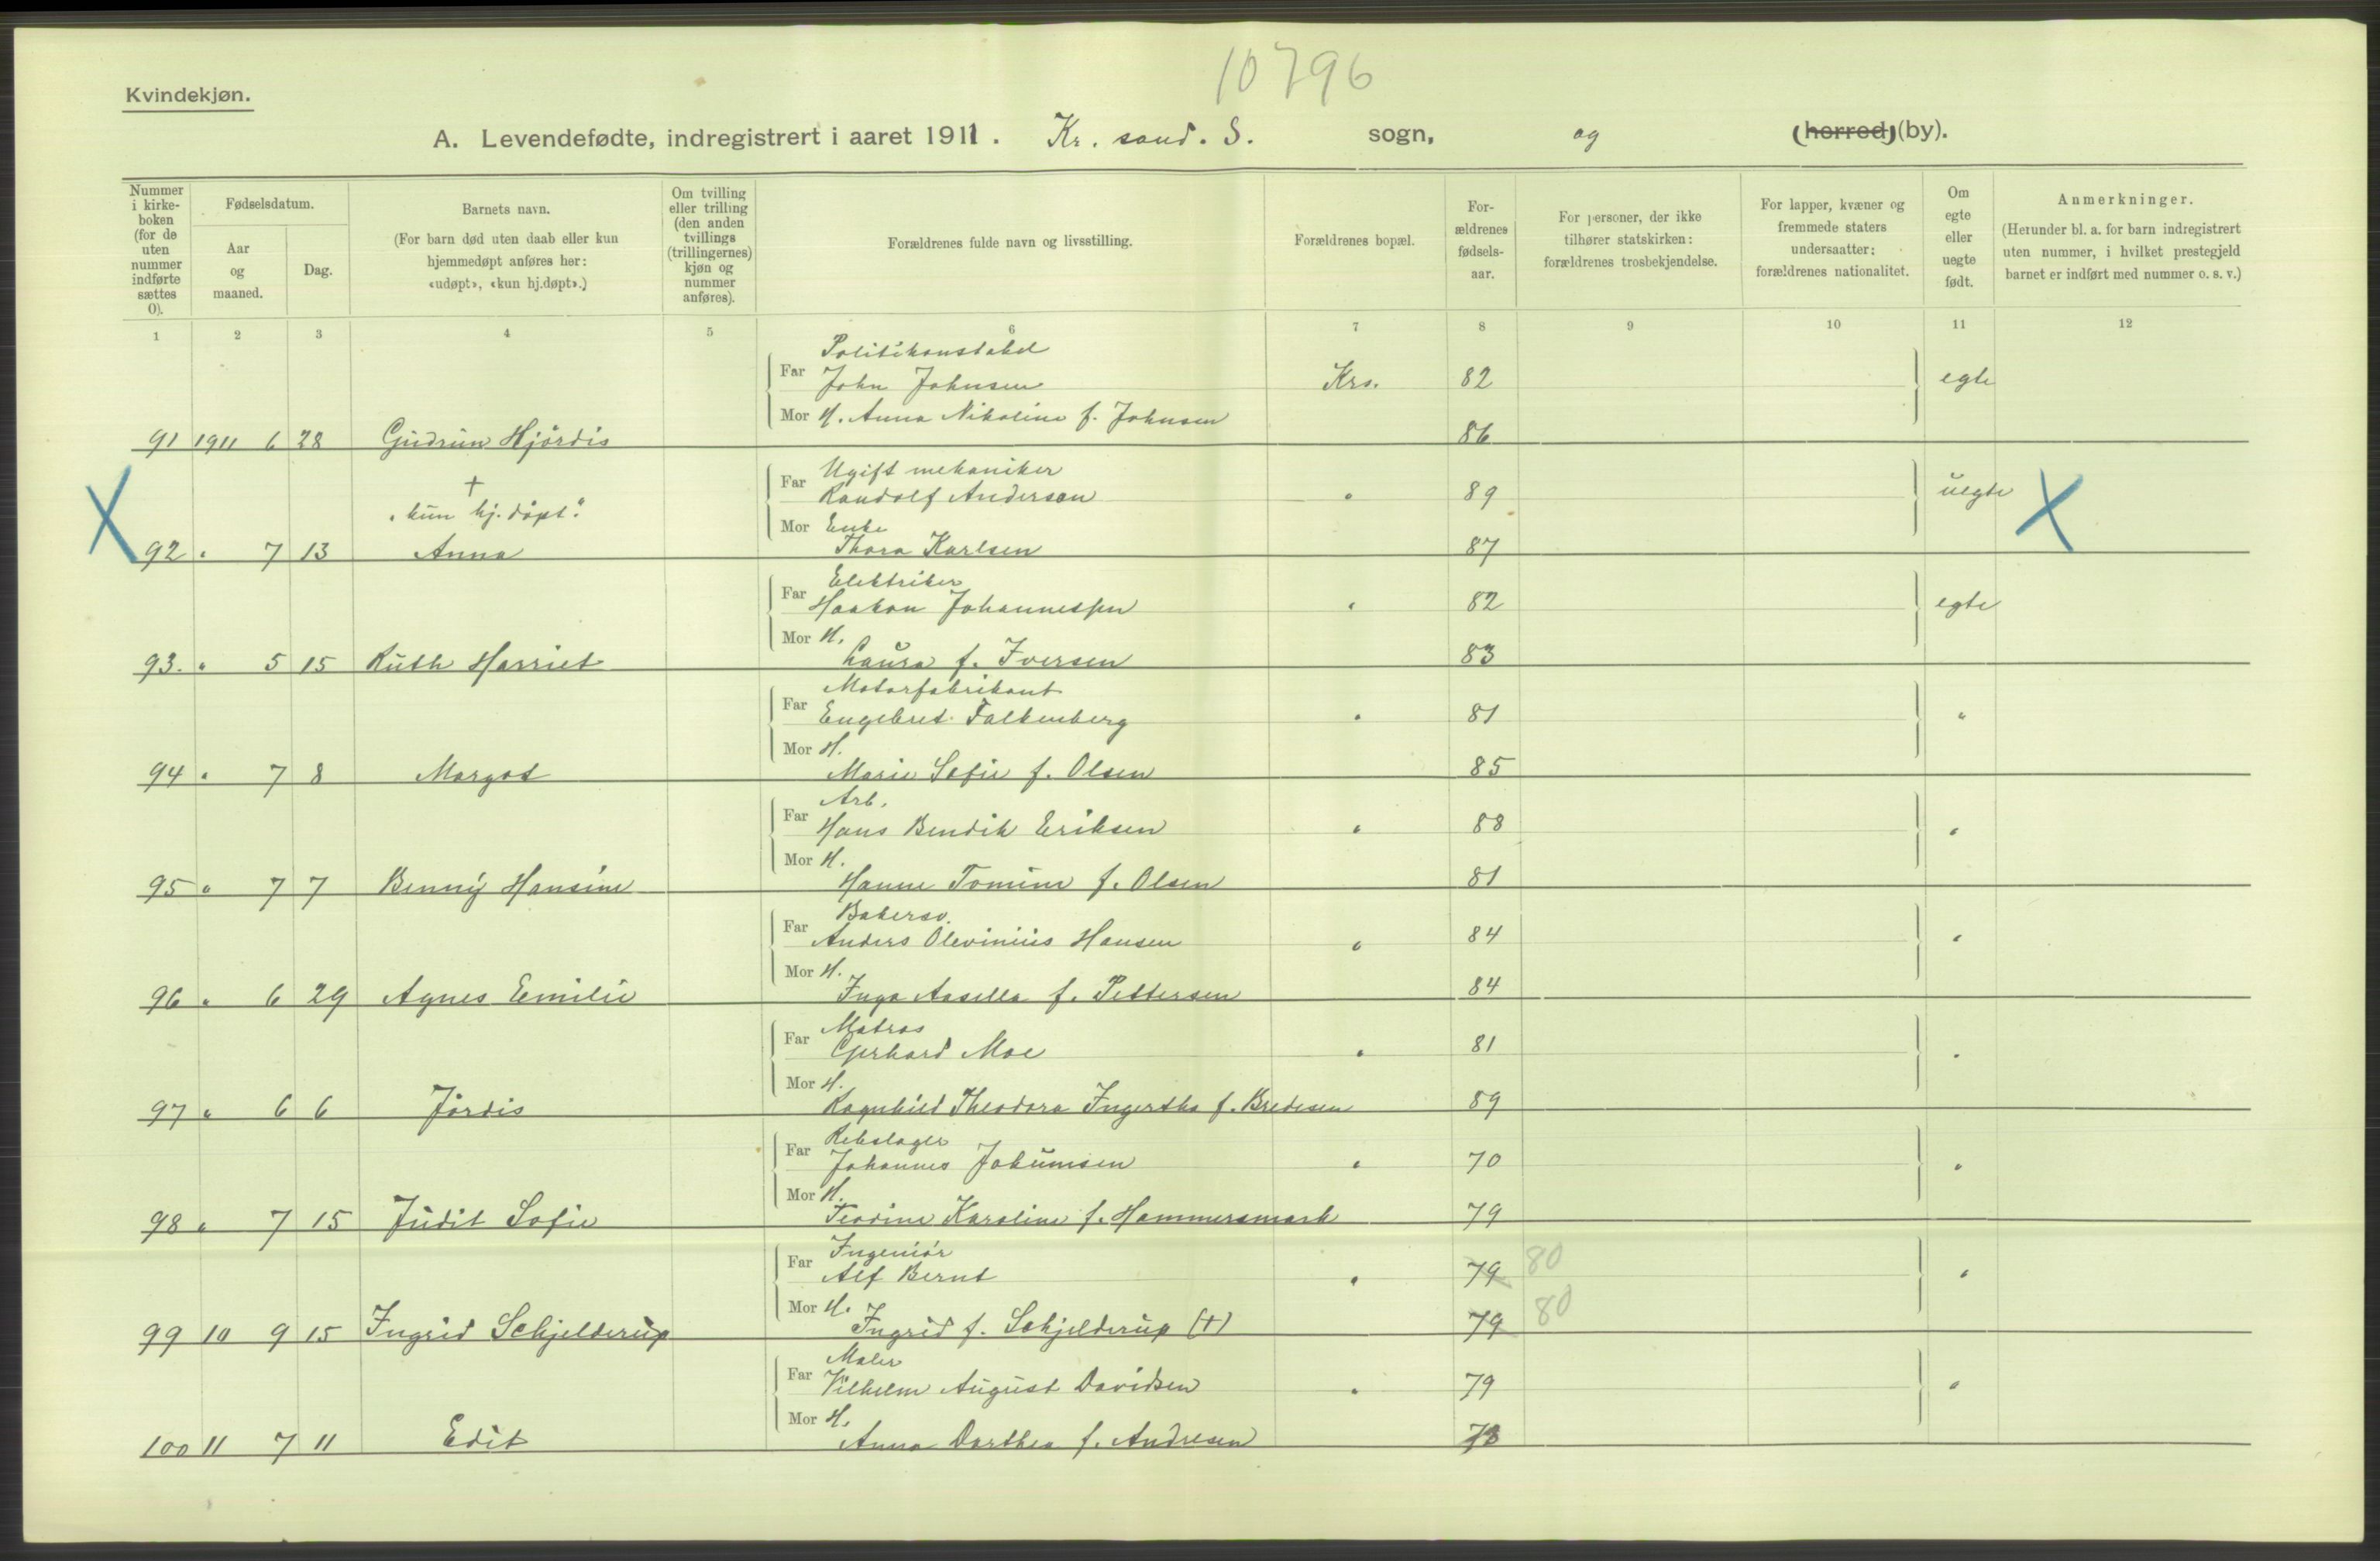 10796
Kvindekjøn.
A. Levendefødte, indregistrert i aaret 1911. Kr. sand. S. sogn, og (herred) (by).
Nummer i kirke-boken (for de uten nummer indførte sættes 0).
Fødselsdatum.
Aar og maaned.
Dag.
Barnets navn.
(For barn død uten daab eller kun hjemmedøpt anføres her: «udøpt», «kun hj.døpt».)
Om tvilling eller trilling (den anden tvillings (trillingernes) kjøn og nummer anføres).
Forældrenes fulde navn og livsstilling.
Forældrenes bopæl.
For-ældrenes fødsels-aar.
For personer, der ikke tilhører statskirken: forældrenes trosbekjendelse.
For lapper, kvæner og fremmede staters undersaatter: forældrenes nationalitet.
Om egte eller uegte født.
Anmerkninger.
(Herunder bl. a. for barn indregistrert uten nummer, i hvilket prestegjeld barnet er indført med nummer o. s. v.)
1 2 3 4 5 6 7 8 9 10 11 12
Politikonstabel
Far John Johnsen Krs. 82 egte
Mor H. Anna Nikoline f. Johnsen 86
91 1911 6 28 Gudrun Hjördis
Ugift mekaniker
X + Far Randolf Anderson " 89 uegte X
"kun hj. döpt."
Mor Enke
92 " 7 13 Anna Thora Karlsen 87
Elektriker
Far Haakon Johannessen " 82 egte
Mor H.
93. " 5 15 Ruth Harriet Laura f. Iversen 83
Motorfabrikant
Far Engebret Falkenberg " 81 "
Mor H.
94 " 7 8 Margot Marie Sofie f. Olsen 85
Arb.
Far Hans Bendik Eriksen " 88 "
Mor H.
95 " 7 7 Benny Hansine Hanne Tomine f. Olsen 81
Bakersv.
Far Anders Olevinius Hansen " 84 "
Mor H.
96 " 6 29 Agnes Emilie Inga Aasella f. Pettersen 84
Matros
Far Gerhard Moe " 81 "
Mor H.
97 " 6 6 Jördis Ragnhild Theodora Ingertha f. Bredesen 89
Rebslager
Far Johannes Jokumsen " 70 "
Mor H.
98 " 7 15 Judit Sofie Teodine Karoline f. Hammersmark 79
Ingeniör
Far Alf Bernt " 79 80 "
Mor H.
99 10 9 15 Ingrid Schjelderup Ingrid f. Schjelderup (+) 79 80
Maler
Far Vilhelm August Davidsen " 79 "
Mor H.
100 11 7 11 Edit Anna Dorthea f. Andresen 78